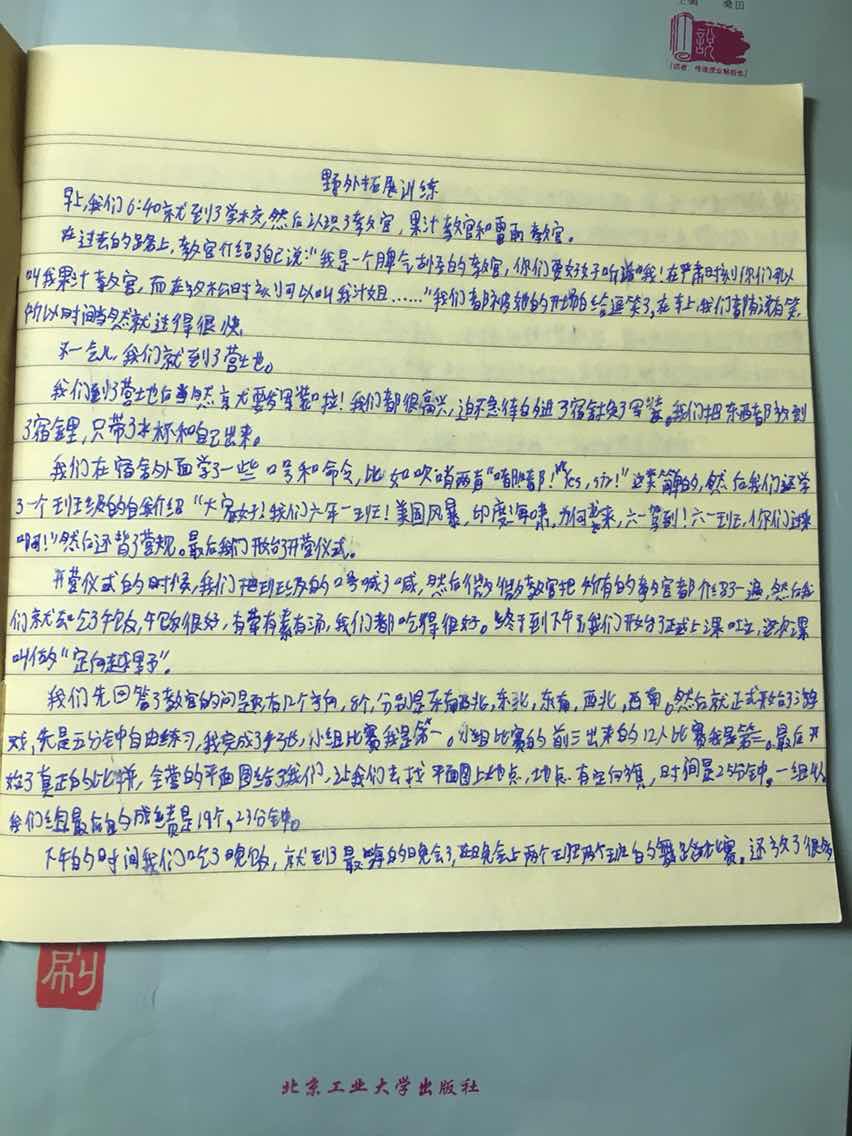 主编 桑田
說
野外拓展训练
早上我们6:40就到了学校,然后认识了教官,果汁教官和雷雨教官。
在过去的路上,教官介绍了自己说:“我是一个脾气古怪的教官,你们要好好听话哦!在严肃时刻你们可以
叫我果汁教官,而在轻松时刻可以叫我汁姐……”我们都被她的开场白给逗笑了,在车上我们有说有笑
所以时间当然就过得很快。
不一会儿,我们就到了营地。
我们到了营地后当然就要发军装啦!我们都很高兴,迫不急待的进了宿舍换了军装。我们把东西都放到
了宿舍里,只带了水杯和自己出来。
我们在宿舍外面学了一些口号和命令,比如吹哨两声“嘟嘟!”“Yes,sir!”这类简单的,然后我们还学
了一个班级的自我介绍“大家好!我们六年一班!美国风暴,印度海啸,为何袭来,六一驾到!六一班,你们
啊!”然后还背了营规。最后我们开始了开营仪式。
开营仪式的时候,我们把班级的口号喊了喊,然后微微教官把所有的教官都介绍了一遍,然后我
们就去吃了午饭,午饭很好,有荤有素有汤,我们都吃得很好。终于到下午了,我们开始了正式上课啦,这次课
叫做“定向越野”。
我们先回答了教官的问题有几个方向,8个,分别是东南西北,东北,东南,西北,西南。然后就正式开始了游
戏,先是五分钟自由练习,我完成了,小组比赛我是第一。小组比赛的前三出来的12人比赛我是第二。最后开
始了真正的比拼,全营的平面图给了我们,让我们去找平面图上地点,地点有定向旗,时间是25分钟。一组
我们组最后的成绩是19个,23分钟。
下午的时间我们吃了晚饭,就到了最嗨的晚会了,在晚会上两个班的舞蹈比赛。还放了很多
刷
北京工业大学出版社